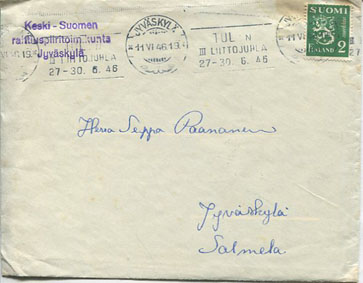 Keski - Suomen
raittiuspiiritoimikunta
Jyväskylä
JYVÄSKYLÄ
11 VI 46.19
TUL N
III LIITTOJUHLA
27-30. 6. 46
III LIITTOJUHLA
27-30. 6. 46
SUOMI
FINLAND
2
Herra Seppo Paananen
Jyväskylä
Salmela